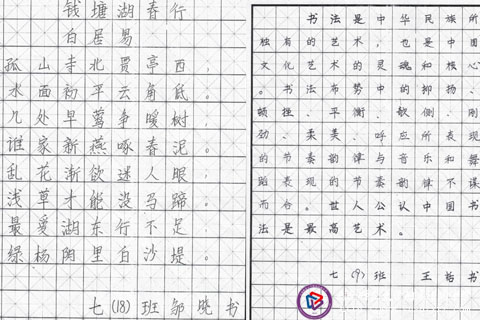 钱塘湖春行
白居易
孤山寺北贾亭西，
水面初平云角低。
几处早莺争暖树，
谁家新燕啄春泥。
乱花渐欲迷人眼，
浅草才能没马蹄。
最爱湖东行不足，
绿杨阴里白沙堤。
七(18)班邹晓书
书法是中华民族所
独有的艺术，也是中国
文化艺术的灵魂和核心
。书法布势中的抑扬、
顿挫、平衡、欹侧、刚
劲、柔美、呼应所表现
的节奏韵律与音乐和舞
蹈表现的节奏韵律不谋
而合。世人公认中国书
法是最高艺术。
七(9)班 王哲书